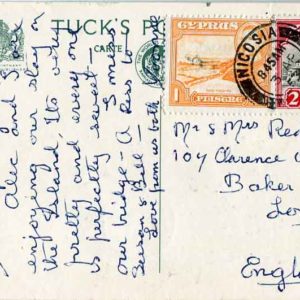 TUCK'S P
CARTE
CYPRUS
1 PIASTRE
NICOSIA
2
Alec and I are
enjoying our stay on
the Island. Its very
pretty and every one
is perfectly sweet -
I miss
our bridge - A kiss to
& Bill
Love from us both
Mr & Mrs
104 Clarence
Baker
Lo
Engl